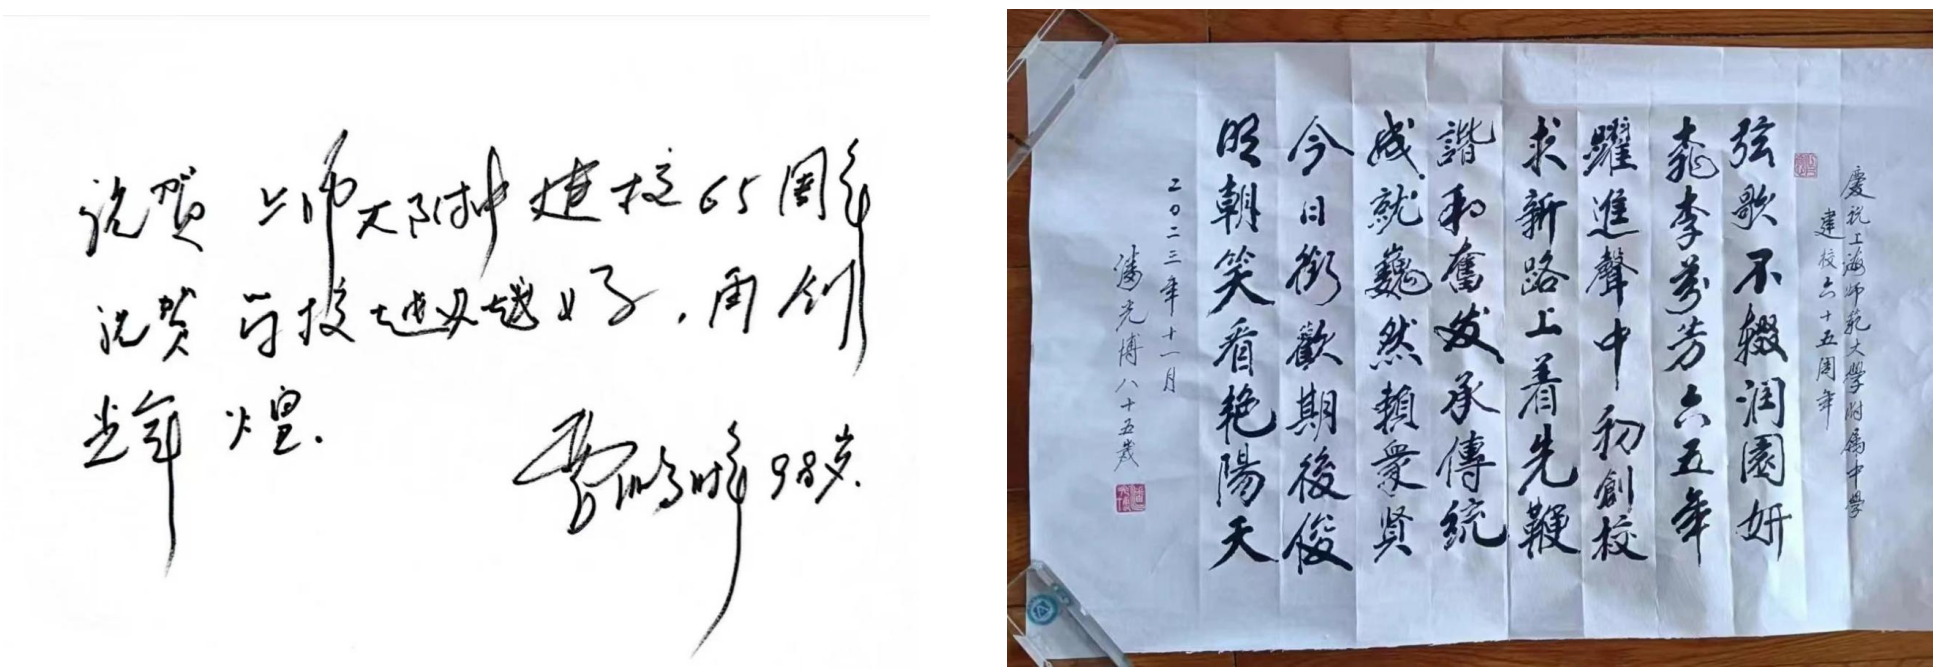 祝贺 上师大附中建校65周年
祝贺 母校越办越好，再创
辉煌.
98岁.
慶祝上海师範大學附属中學
建校六十五周年
弦歌不辍润園妍
桃李芬芳六五年
躍進聲中初創校
求新路上着先鞭
諧和奮发承傳統
成就巍然賴衆賢
今日銜歡期後俊
明朝笑看艳陽天
二〇二三年十一月
潘光博八十五歲